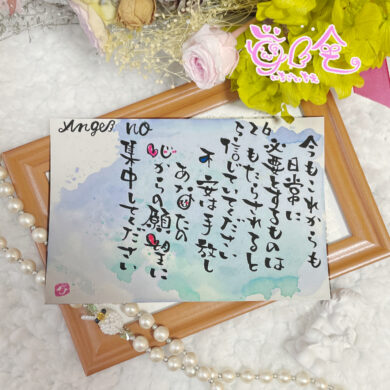 Angel no
26
26
今もこれからも
日常に
必要とするものは
もたらされると
信じていてください
不安は手放し
あなたの
心からの願望に
集中してください